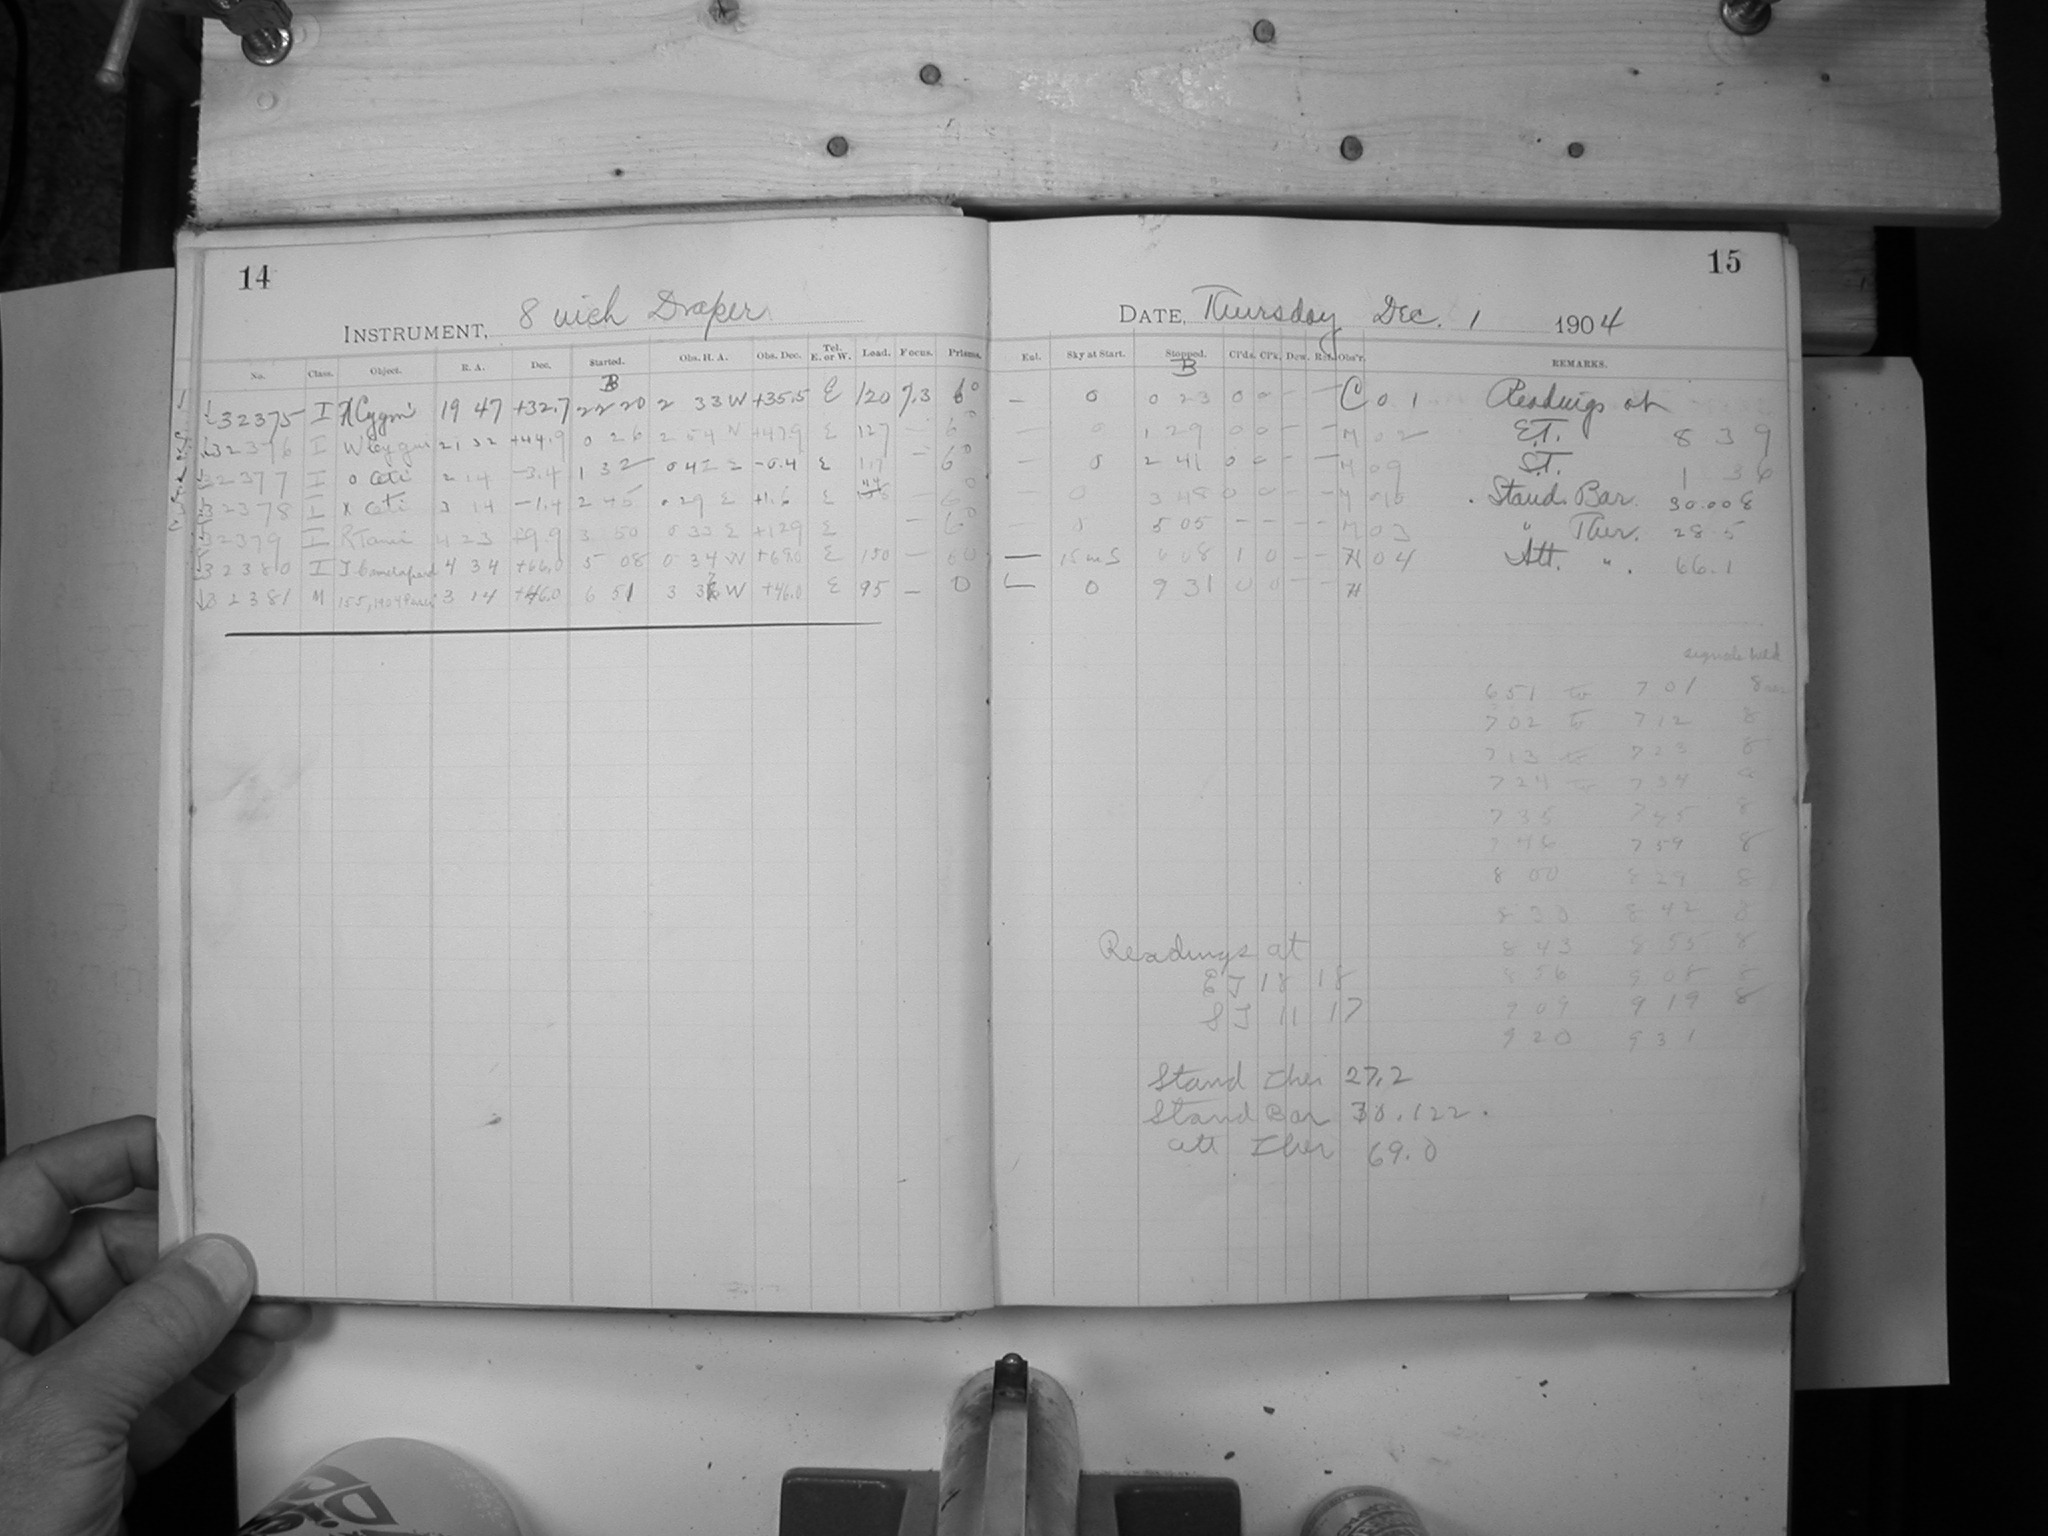 14
INSTRUMENT, 8 inch Draper
No. Class. Object. R. A. Dec. Started. Obs. H. A. Obs. Dec. Tel. E. or W. Load. Focus. Prisms.
B
32375 I X Cygni 19 47 +32.7 22 20 2 33 W +35.5 E 120 7.3 6°
32376 I W Cygni 21 32 +44.9 0 26 2 54 W +47.9 E 127 — 6°
32377 I o Ceti 2 14 -3.4 1 32 0 42 E -0.4 E 117 — 6°
32378 I X Ceti 3 14 -1.4 2 45 0 29 E +1.6 E — 6°
32379 I R Tauri 4 23 +9.9 3 50 0 33 E +12.9 E — 6°
32380 I T Camelopard 4 34 +66.0 5 08 0 34 W +69.0 E 150 — 60
32381 M 155, 1904 Persei 3 14 +46.0 6 51 3 W +46.0 E 95 — 0
15
DATE, Thursday Dec. 1 1904
Ent. Sky at Start. Stopped. Cl'ds. Cl'k. Dew. Obs'r. REMARKS.
B
— 0 0 23 0 0 - - C 0 1 Readings at
— 0 1 29 0 0 - - H 0 2 E.T. 8 39
— 0 2 41 0 - - - H 0 9 S.T. 1 36
— 0 3 48 0 0 - - Stand. Bar. 30.008
— 0 5 05 - - - - H 0 3 " Ther. 28.5
— 15 m S 6 08 1 0 - - H 0 4 Att. " . 66.1
0 9 31 0 0 - - H
signals held
6 51 to 7 01 8
7 02 to 7 12 8
7 13 to 7 23 8
7 24 to 7 34
7 35 7 45 8
7 46 7 59 8
8 00 8 29 8
8 30 8 42 8
8 43 8 55 8
8 56 9 08 8
9 09 9 19 8
9 20 9 31
Readings at
E T 18 18
S T 11 17
Stand Ther 27.2
Stand Bar 30.122.
Att Ther 69.0